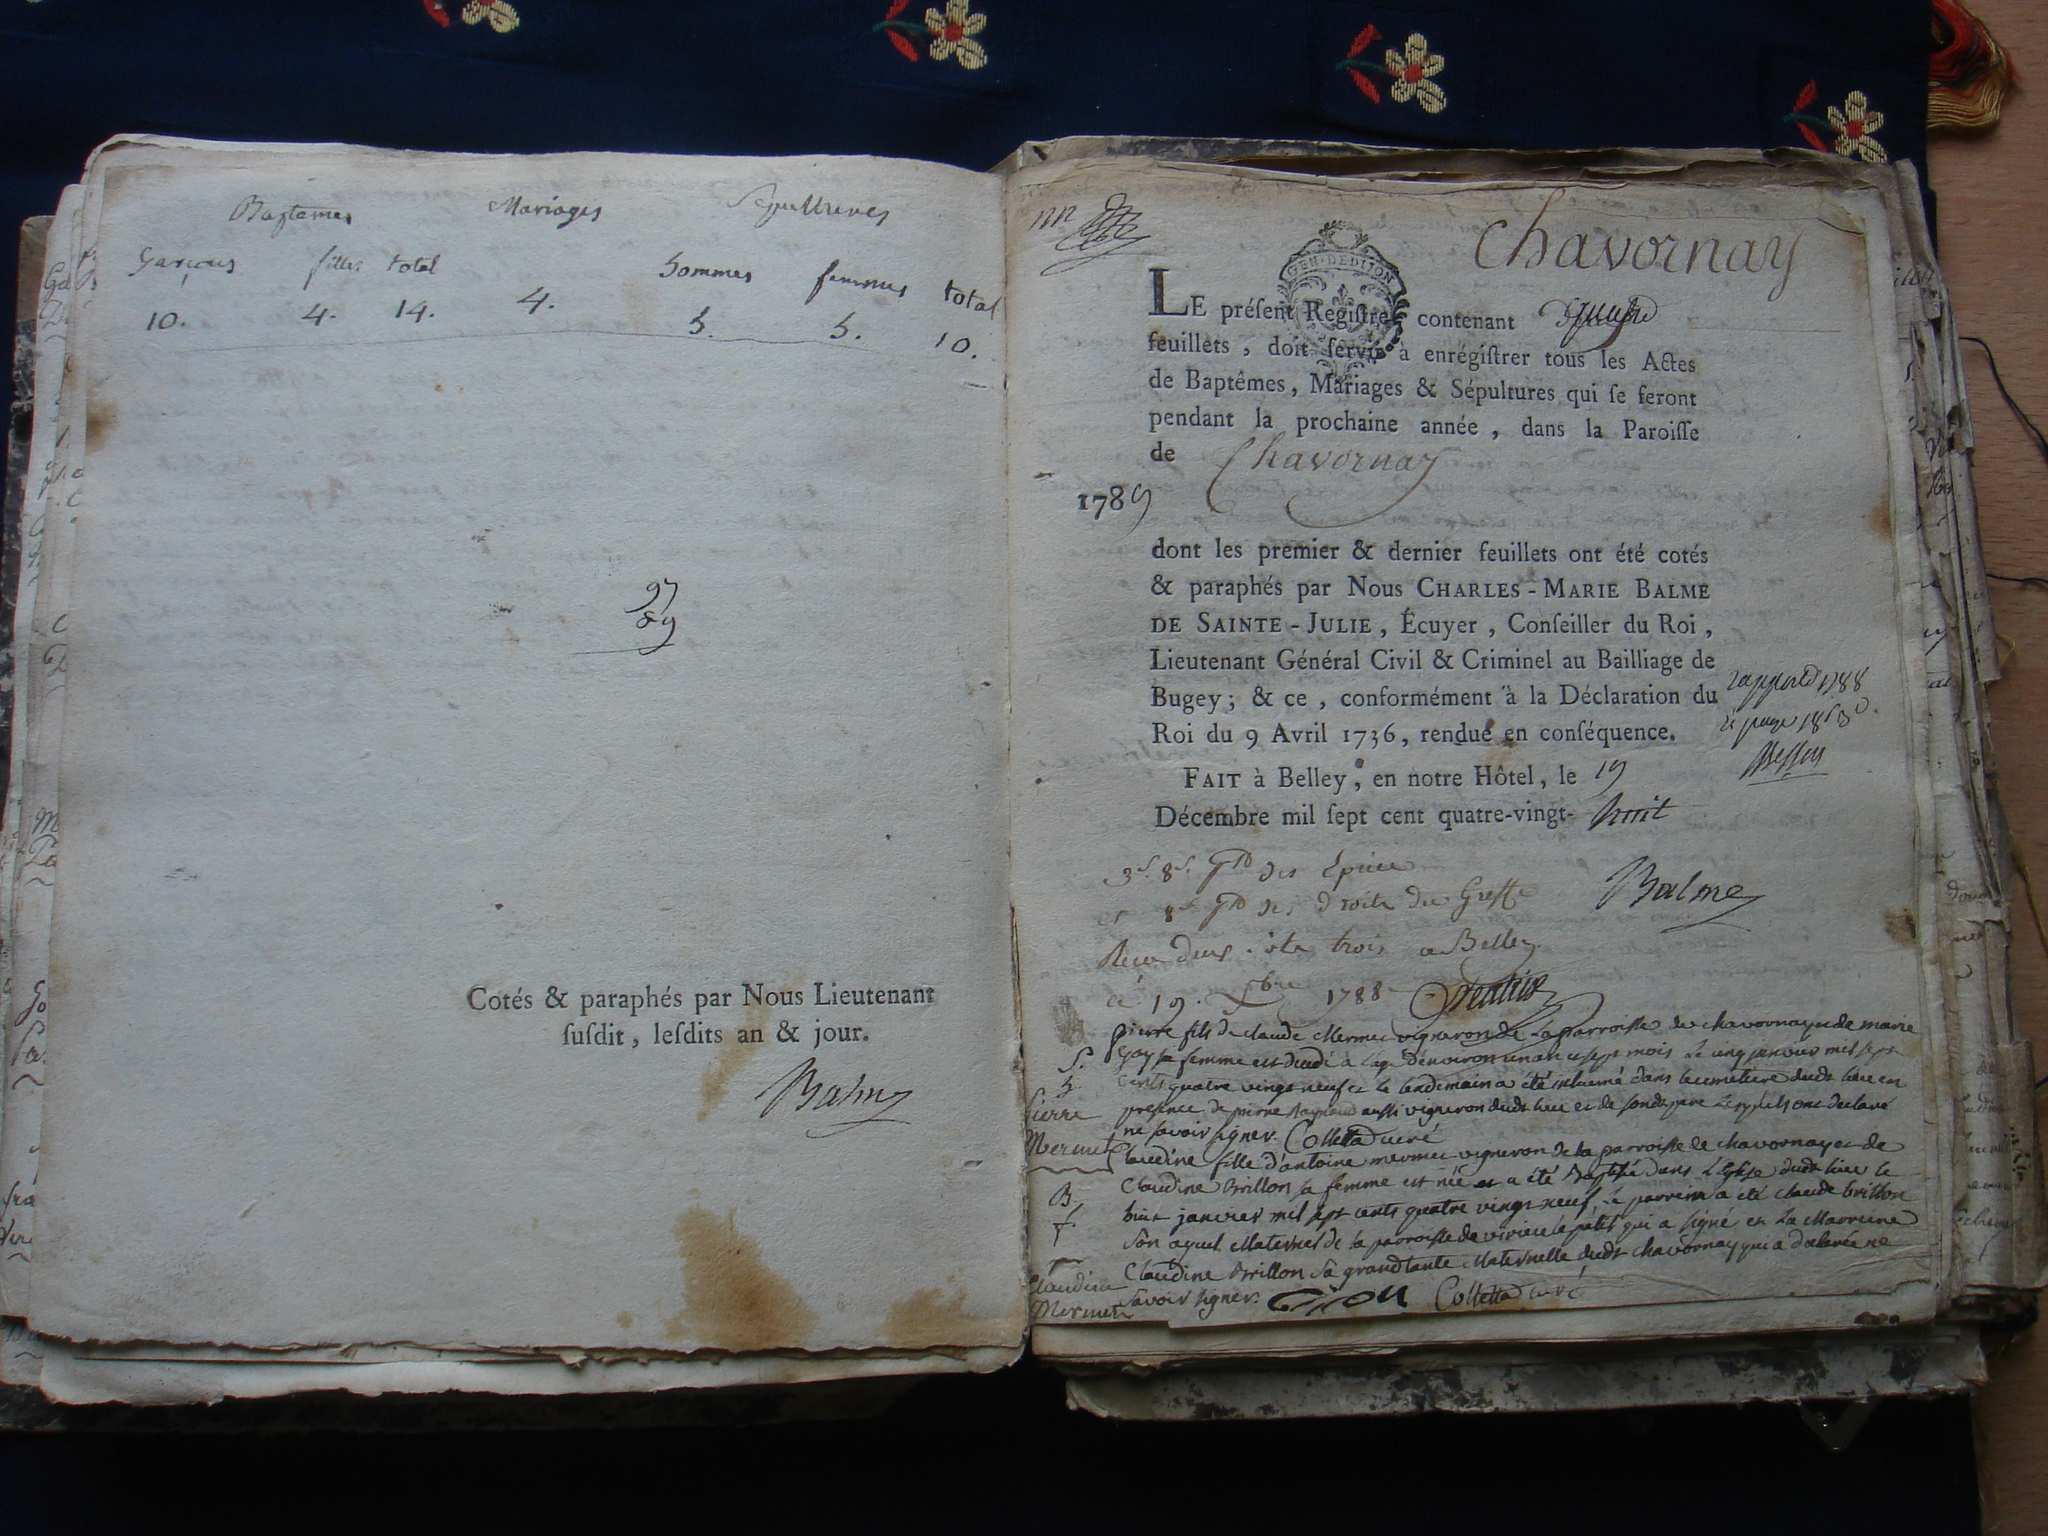 Baptemes Mariages Sepultures
Garçons filles total hommes femmes total
10. 4. 14. 4. 5. 5. 10.
97
89
Cotés & paraphés par Nous Lieutenant
ſuſdit, leſdits an & jour.
Balme
Chavornay
GEN. DE DIJON
LE préſent Regiſtre contenant
feuillets, doit ſervir à enrégiſtrer tous les Actes
de Baptêmes, Mariages & Sépultures qui ſe feront
pendant la prochaine année, dans la Paroiſſe
de Chavornay
1789
dont les premier & dernier feuillets ont été cotés
& paraphés par Nous CHARLES-MARIE BALME
DE SAINTE-JULIE, Écuyer, Conſeiller du Roi,
Lieutenant Général Civil & Criminel au Bailliage de
Bugey; & ce, conformément à la Déclaration du
Roi du 9 Avril 1736, rendue en conſéquence.
rapporté 1788
Besson
FAIT à Belley, en notre Hôtel, le 19
Décembre mil ſept cent quatre-vingt-huit
des Epices
des droits du Greffe
Balme
trois a Belley
19. Xbre 1788
pierre fils de claude Mermet vigneron de La parroisse de chavornay et de marie
Goy sa femme est décédé a L'age d'environ un an et sept mois Le cinq janvier mil sept
cents quatre vingt neuf et Le lendemain a été inhumé dans le cimetiere dudt lieu en
presence de pierre aussi vigneron dudt lieu et de sondt pere Lesquels ont declaré
ne savoir signer. Colletta curé
S.
h.
Pierre
Mermet
Claudine fille d'antoine mermet vigneron de la parroisse de chavornay et de
Claudine Brillon sa femme est née et a été Baptisée dans L'Eglise dudt lieu le
huit janvier mil sept cents quatre vingt neuf Le parrein a été claude brillon
son ayeul Maternel de la parroisse de virieu le petit qui a signé et La Marreine
Claudine Brillon sa grand tante Maternelle dudt chavornay qui a declarée ne
savoir signer. Colletta curé
B.
f.
Claudine
Mermet